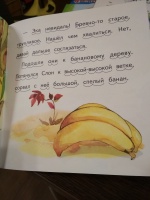 – Эка невидаль! Бревно-то старое,
трухлявое. Нашёл чем хвалиться. Нет,
давай дальше состязаться.
Подошли они к банановому дереву.
Потянулся Слон к высокой-высокой ветке,
сорвал с неё большой, спелый банан.